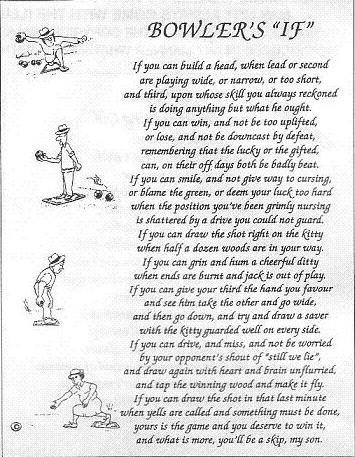 BOWLER'S "IF"
If you can build a head, when lead or second
are playing wide, or narrow, or too short,
and third, upon whose skill you always reckoned
is doing anything but what he ought.
If you can win, and not be too uplifted,
or lose, and not be downcast by defeat,
remembering that the lucky or the gifted,
can, on their off days both be badly beat.
If you can smile, and not give way to cursing,
or blame the green, or deem your luck too hard
when the position you've been grimly nursing
is shattered by a drive you could not guard.
If you can draw the shot right on the kitty
when half a dozen woods are in your way.
If you can grin and hum a cheerful ditty
when ends are burnt and jack is out of play.
If you can give your third the hand you favour
and see him take the other and go wide,
and then go down, and try and draw a saver
with the kitty guarded well on every side.
If you can drive, and miss, and not be worried
by your opponent's shout of "still we lie",
and draw again with heart and brain unflurried,
and tap the winning wood and make it fly.
If you can draw the shot in that last minute
when yells are called and something must be done,
yours is the game and you deserve to win it,
and what is more, you'll be a skip, my son.
©